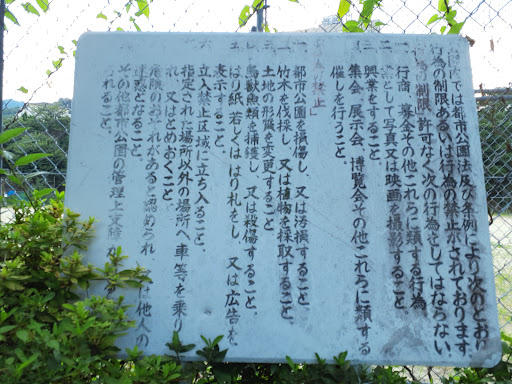 園内では都市公園法及び条例により次のとおり
行為の制限あるいは行為の禁止がされております
行為の制限 許可なく次の行為をしてはならない
一、行商、募金その他これらに類する行為、
業として写真又は映画を撮影すること、
三、興業をすること、
集会、展示会、博覧会その他これらに類する
催しを行うこと、
の禁止」
一、都市公園を損傷し、又は汚損すること、
竹木を伐採し、又は植物を採取すること、
土地の形質を変更すること
四、鳥獣魚類を捕獲し、又は殺傷すること、
はり紙、若しくははり札をし、又は広告を
表示すること、
立入禁止区域に立ち入ること、
指定された場所以外の場所へ車等を乗り
れ、又はとめおくこと、
危険のおそれがあると認められ
は他人の
迷惑となること、
その他都市公園の管理上支障
れること、